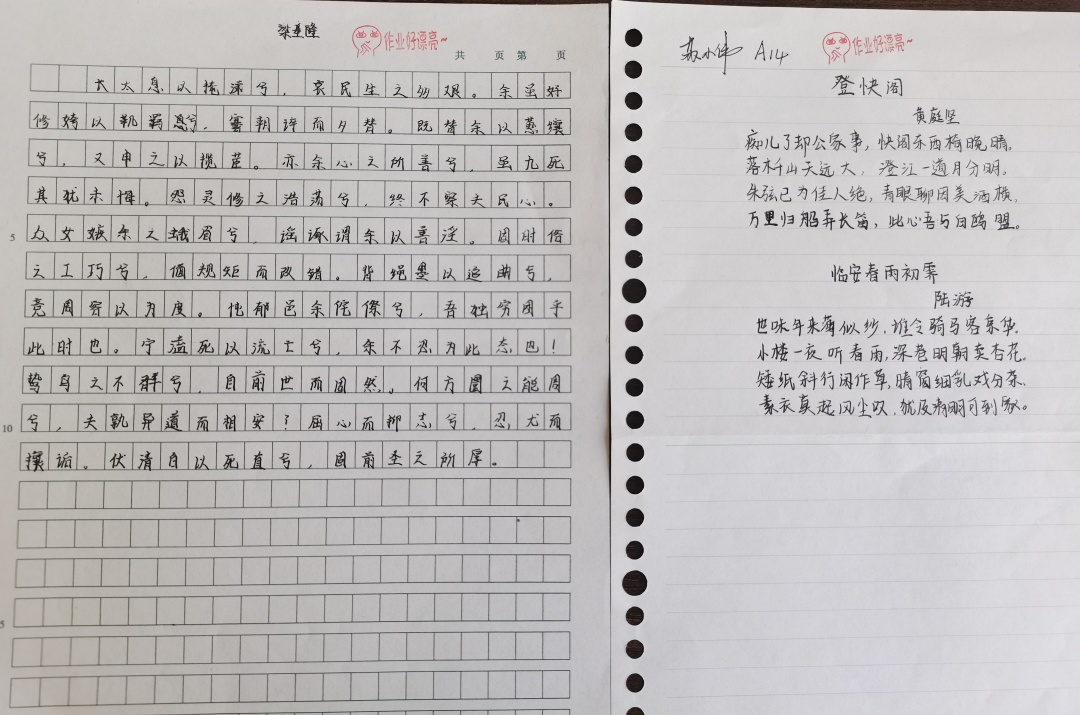 梁亚隆
作业好漂亮~
共 页 第 页
长太息以掩涕兮，哀民生之多艰。余虽好
修姱以鞿羁兮，謇朝谇而夕替。既替余以蕙纕
兮，又申之以揽茝。亦余心之所善兮，虽九死
其犹未悔。怨灵修之浩荡兮，终不察夫民心。
5 众女嫉余之蛾眉兮，谣诼谓余以善淫。固时俗
之工巧兮，偭规矩而改错。背绳墨以追曲兮，
竞周容以为度。忳郁邑余侘傺兮，吾独穷困乎
此时也。宁溘死以流亡兮，余不忍为此态也！
鸷鸟之不群兮，自前世而固然。何方圜之能周
10 兮，夫孰异道而相安？屈心而抑志兮，忍尤而
攘诟。伏清白以死直兮，固前圣之所厚。
5
苏小伟 A14
作业好漂亮~
登快阁
黄庭坚
痴儿了却公家事，快阁东西倚晚晴。
落木千山天远大，澄江一道月分明。
朱弦已为佳人绝，青眼聊因美酒横。
万里归船弄长笛，此心吾与白鸥盟。
临安春雨初霁
陆游
世味年来薄似纱，谁令骑马客京华。
小楼一夜听春雨，深巷明朝卖杏花。
矮纸斜行闲作草，晴窗细乳戏分茶。
素衣莫起风尘叹，犹及清明可到家。